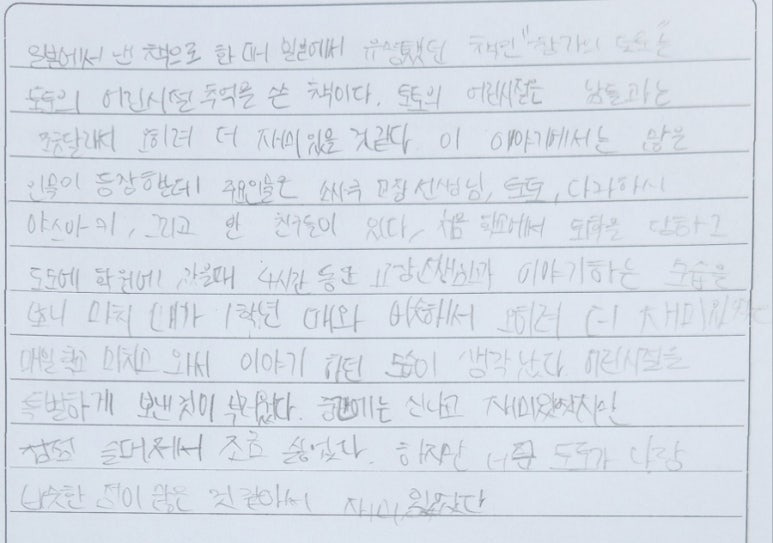 일본에서 낸 책으로 한 때 일본에서 유명했던 책인 "창가의 토토"는
토토의 어린시절 추억을 쓴 책이다. 토토의 어린시절은 남들과는
조금달라서 오히려 더 재미있을 것같다. 이 이야기에서는 많은
인물이 등장한데 주요인물은 소사쿠 교장선생님, 토토, 다카하시
야스아키, 그리고 반 친구들이 있다, 처음 학교에서 퇴학을 당하고
도모에 학원에 갔을때 4시간 동안 교장선생님과 이야기하는 모습을
보니 마치 내가 1학년 때와 비슷해서 오히려 더 재미있었다
매일 학교 마치고 와서 이야기 하던 모습이 생각났다 어린시절을
특별하게 보낸것이 부러웠다. 중간에는 신나고 재미있었지만
점점 슬퍼져서 조금 싫었다. 하지만 토토가 나랑
비슷한 점이 많은 것 같아서 재미있었다